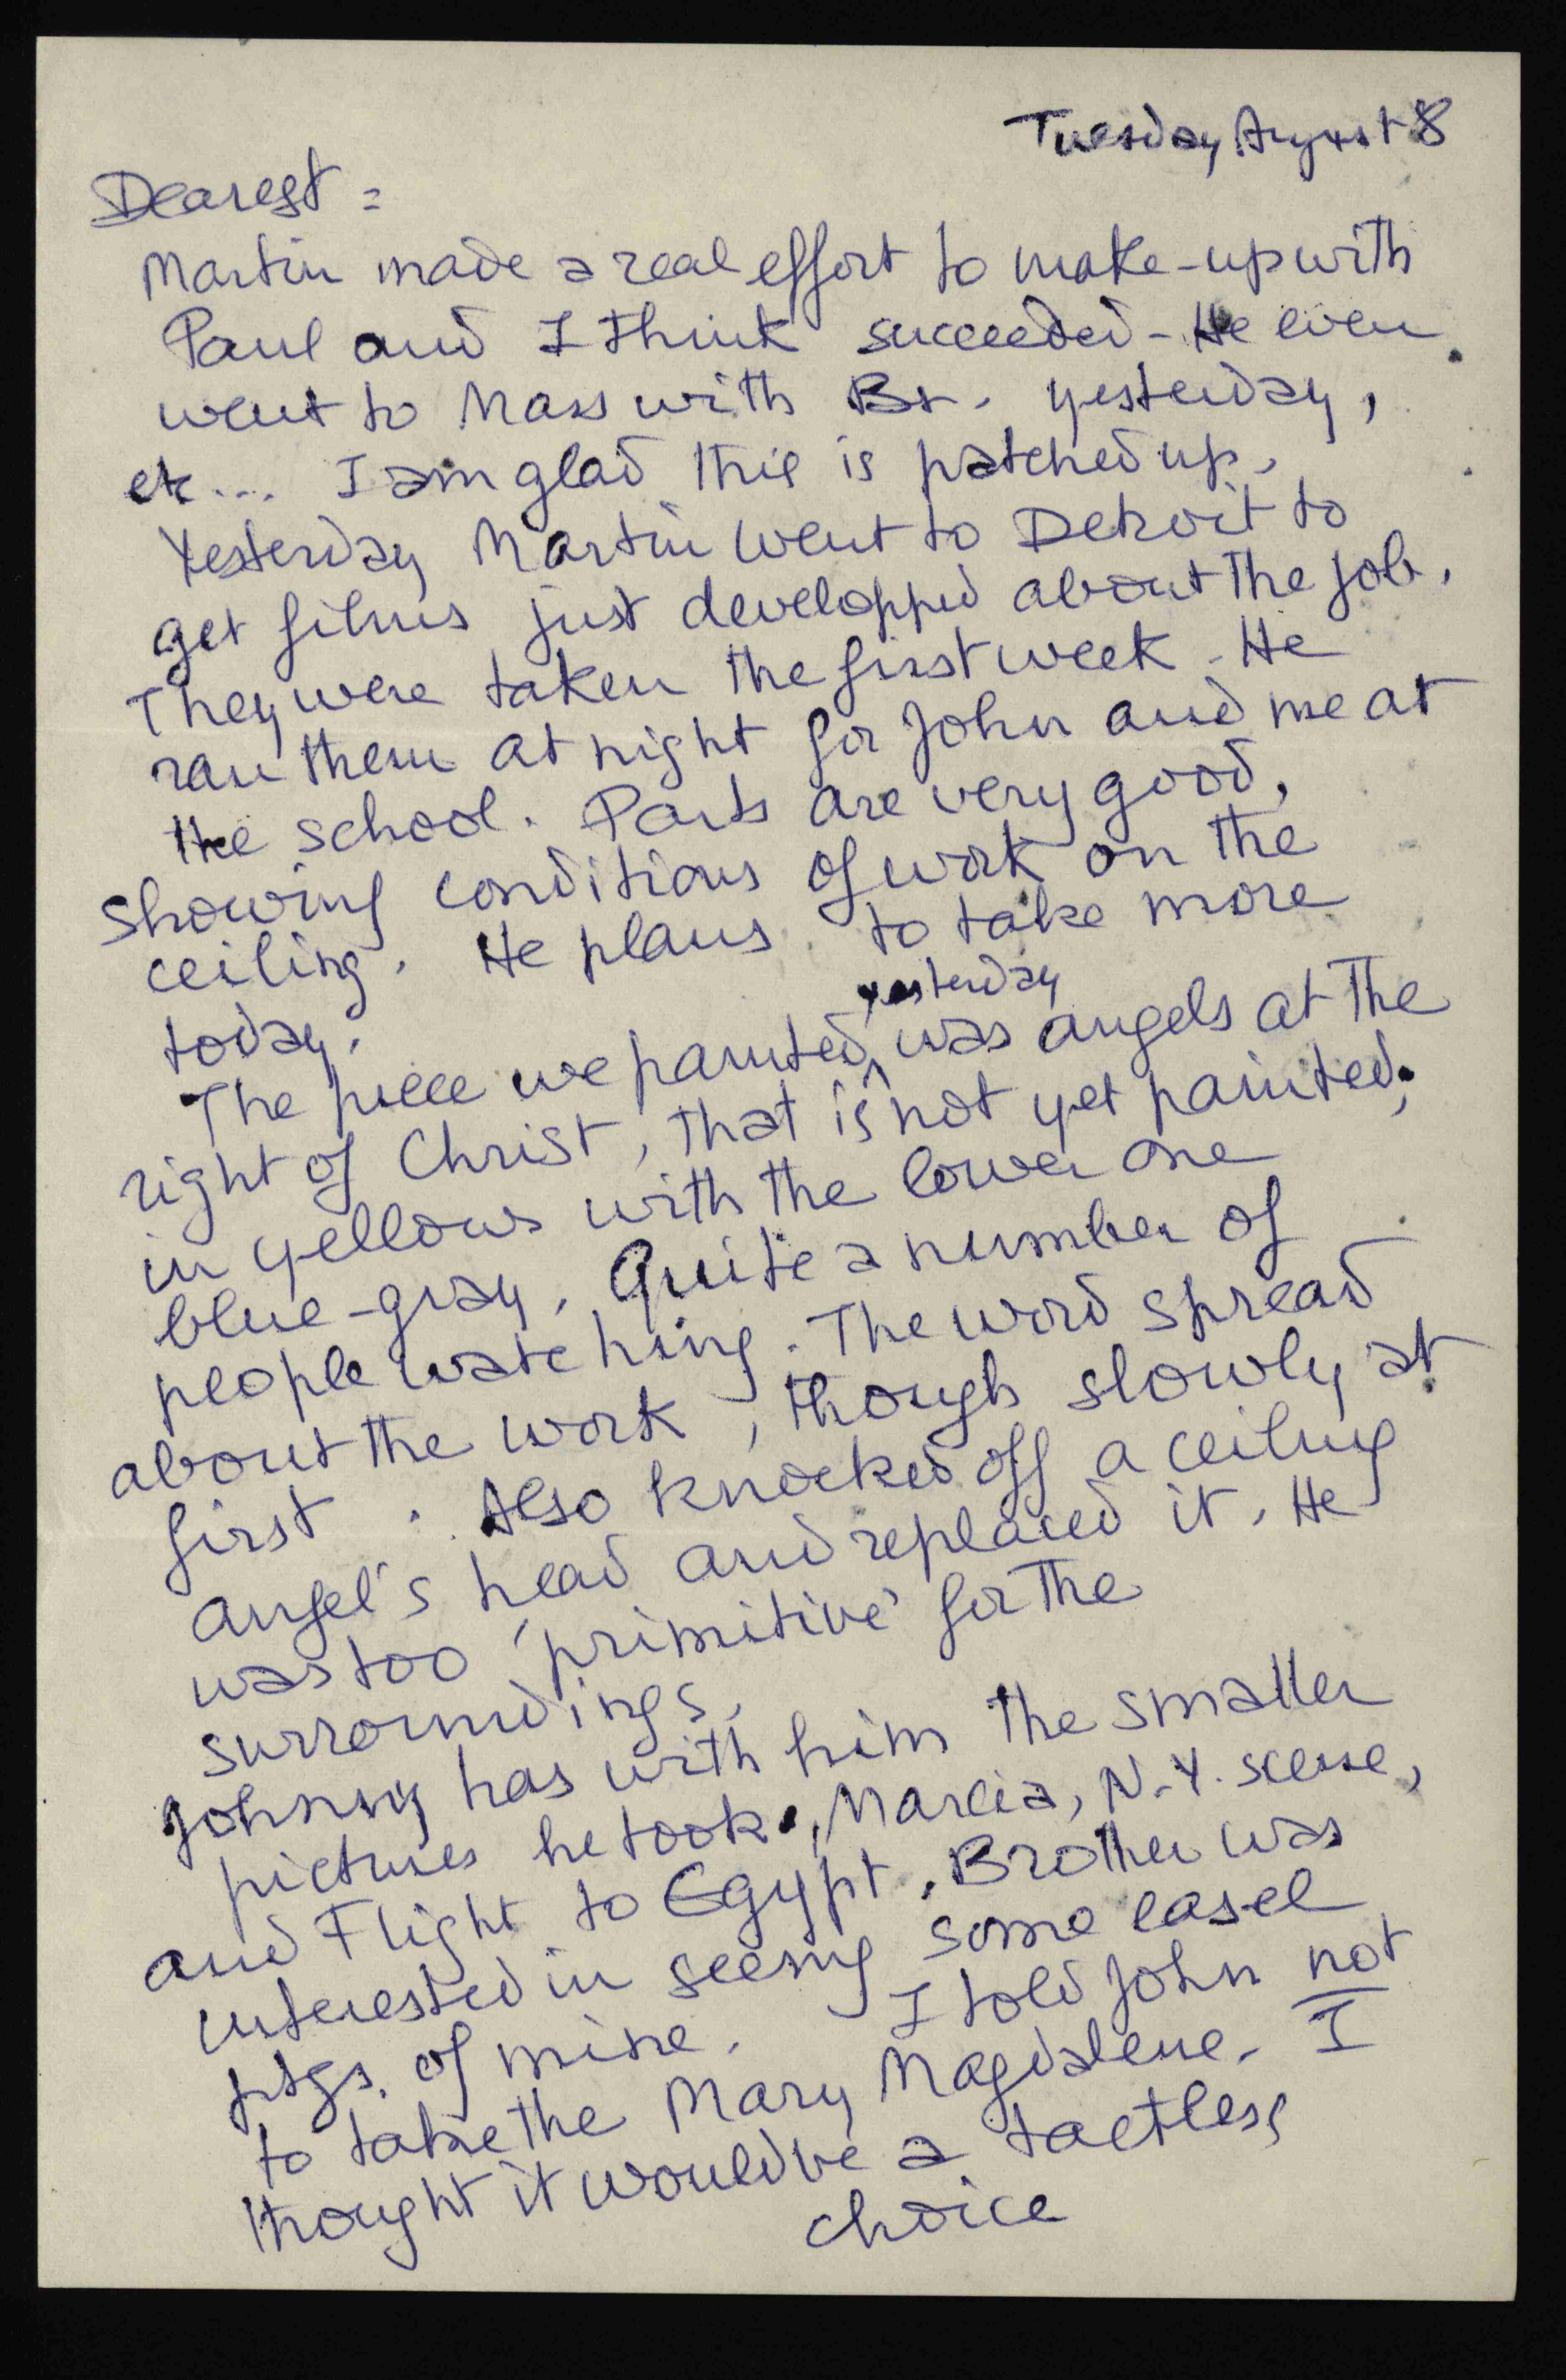 Tuesday August 8
Dearest =
Martin made a real effort to make-up with
Paul and I think succeeded - He even
went to Mass with Br. yesterday,
etc... I am glad this is patched up.
Yesterday Martin went to Detroit to
get films just developped about the job.
They were taken the first week - He
ran them at night for John and me at
the school. Parts are very good,
showing conditions of work on the
ceiling. He plans to take more
today.
yesterday
The piece we painted ^ was angels at the
right of Christ, that is not yet painted,
in yellows with the lower one
blue-gray. Quite a number of
people watching. The word spread
about the work, though slowly at
first. Also knocked off a ceiling
angel's head and replaced it. He
was too 'primitive' for the
surroundings.
Johnny has with him the smaller
pictures he took, Marcia, N.Y. scene,
and Flight to Egypt. Brother was
interested in seeing some easel
ptgs. of mine. I told John not
to take the Mary Magdalene. I
thought it would be a tactless
choice